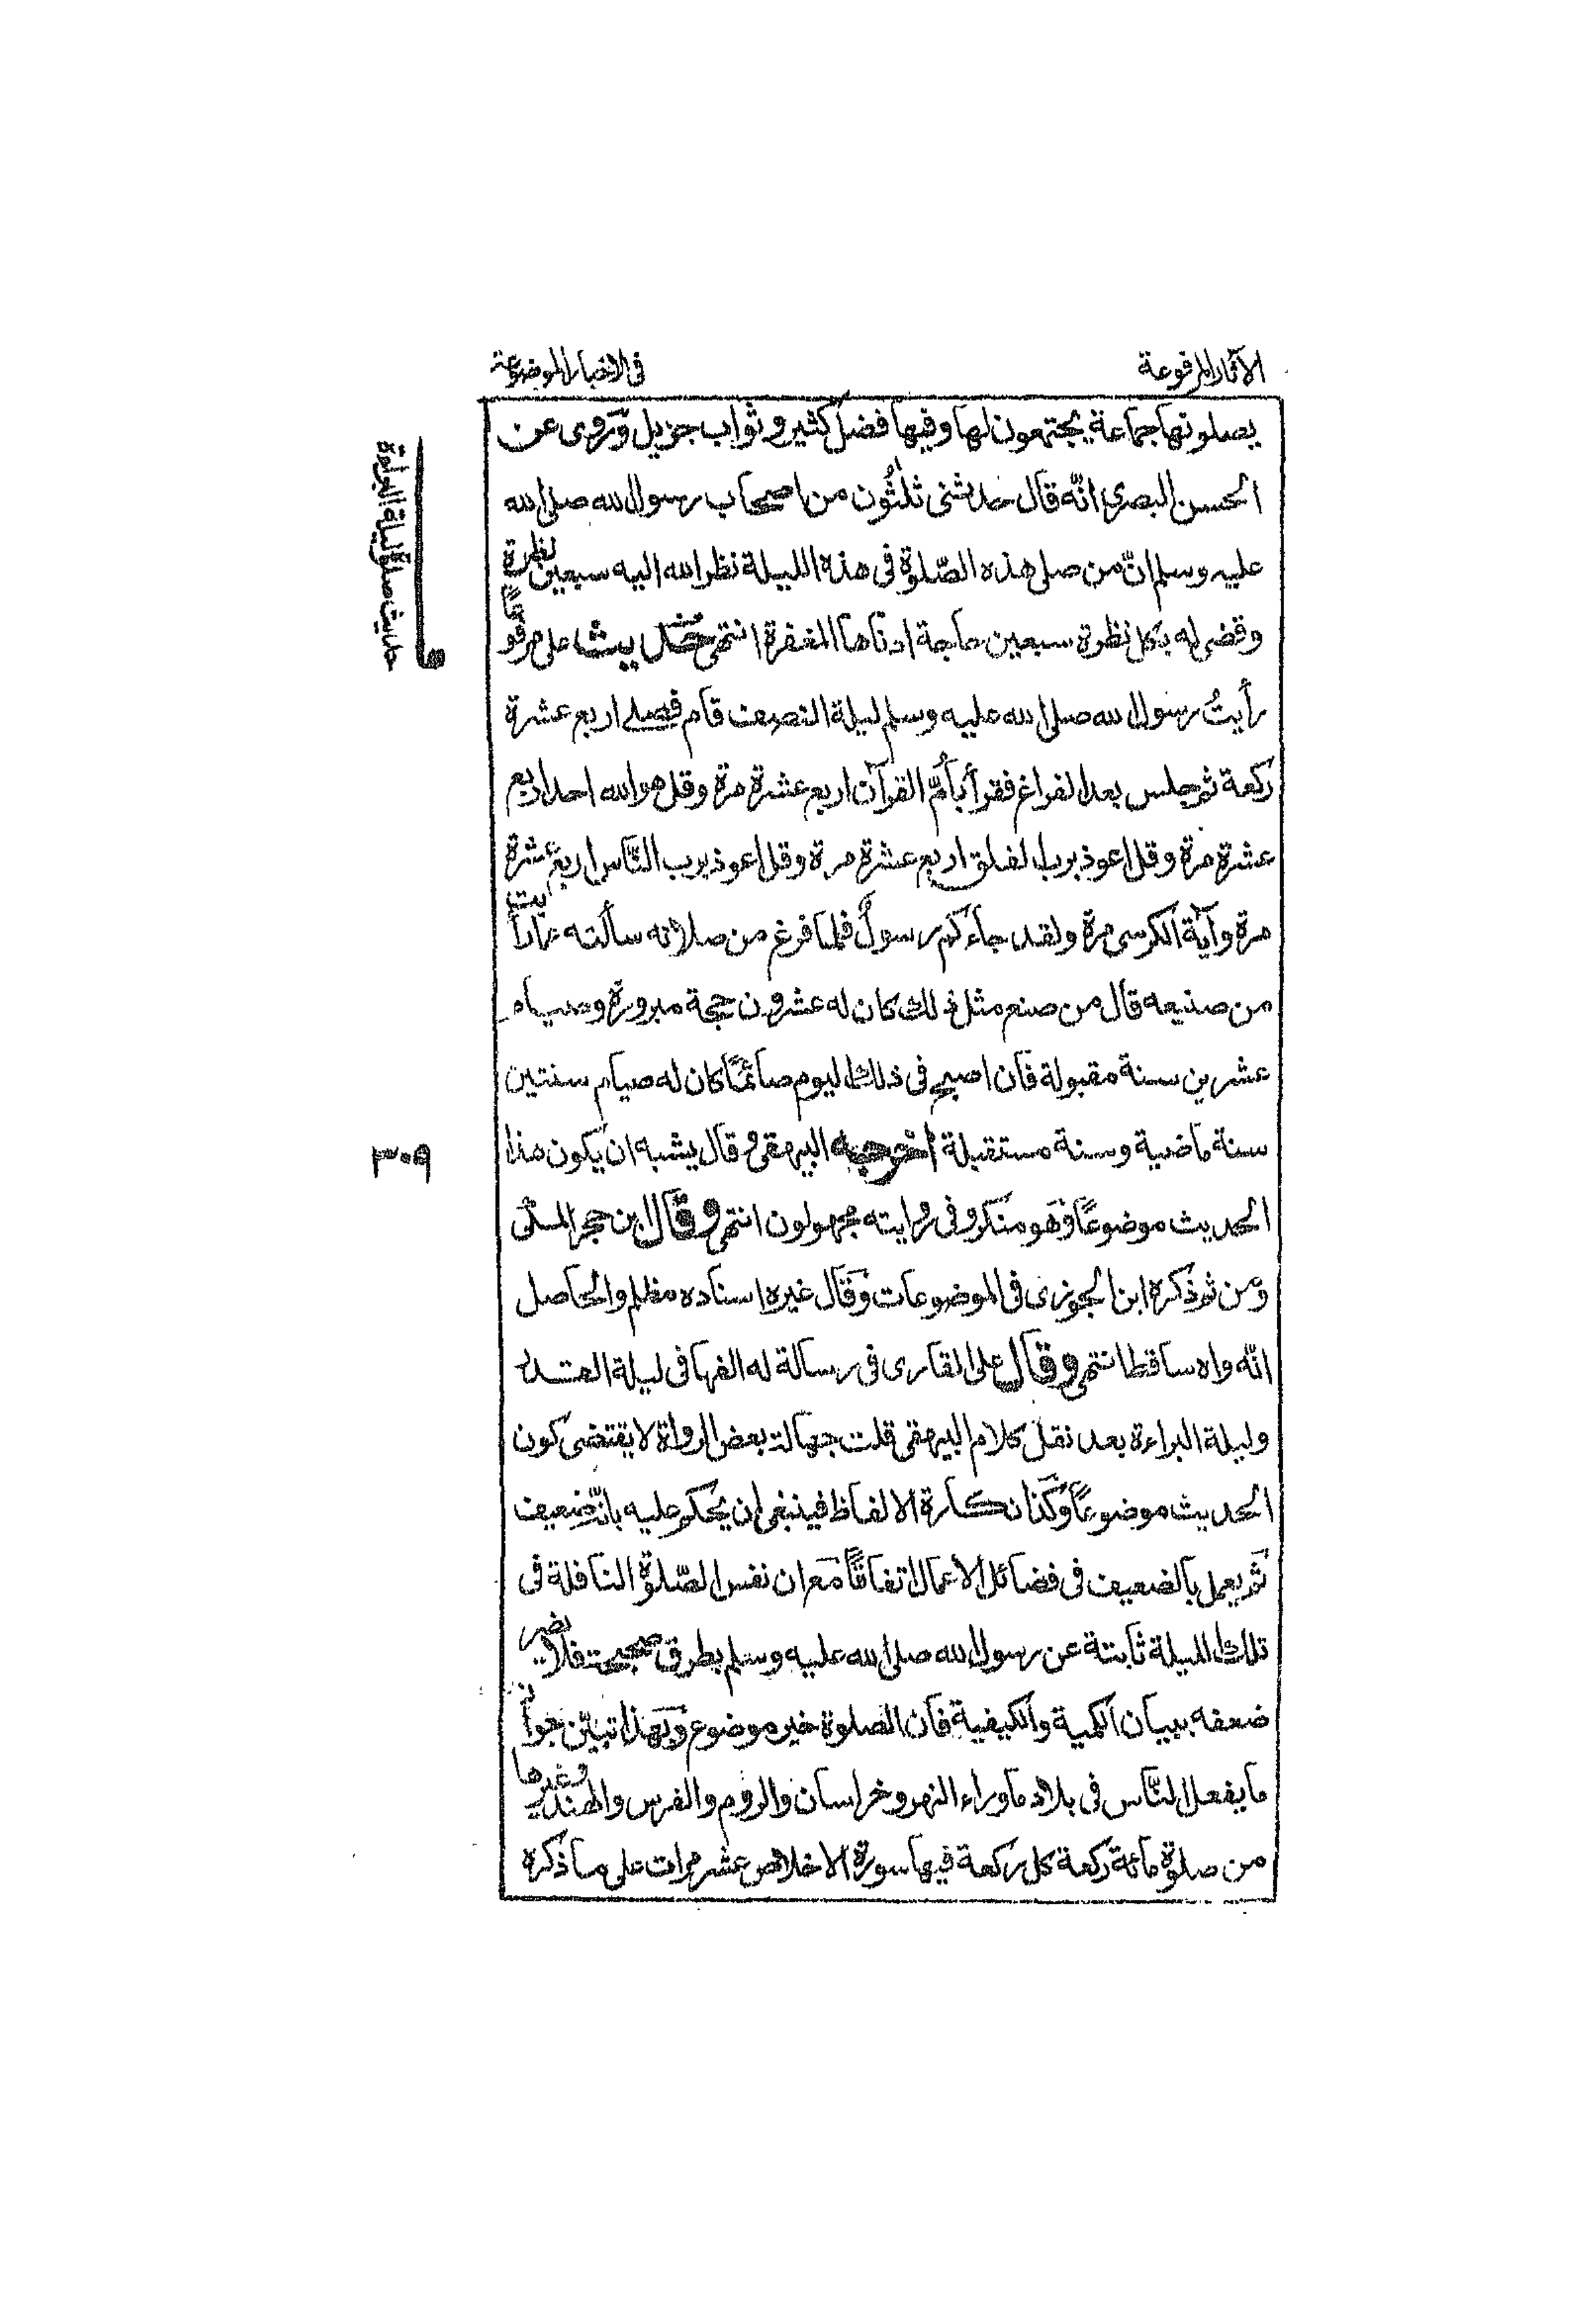 الآثار المرفوعة
فى الاخبار الموضوعة
يصلونها جماعة يجتمعون لها وفيها فضل كثير و ثواب جزيل وَرُوى عن
الحسن البصرى انّه قال حدثنى ثلٰثُون من اصحاب رسول الله صلى الله
عليه وسلم انّ من صلى هذه الصّلوٰة فى هذه الليلة نظر الله اليه سبعين نظرة
وقضى له بكل نظرة سبعين حاجة ادناها المغفرة انتهى حديث على مرفوعًا
رأيتُ رسول الله صلى الله عليه وسلم ليلة النصف قام فصلى اربع عشرة
ركعة ثم جلس بعد الفراغ فقرأ بأُمّ القرآن اربع عشرة مرة وقل هو الله احد اربع
عشرة مرة وقل اعوذ برب الفلق اربع عشرة مرة وقل اعوذ برب النّاس اربع عشرة
مرة وآية الكرسى مرة ولقد جاءكم رسولٌ فلما فرغ من صلاته سألته عما رأيت
من صنيعه قال من صنع مثل ذلك كان له عشرون حجة مبرورة وصيام
عشرين سنة مقبولة فان اصبح فى ذلك اليوم صائمًا كان له صيام سنتين
سنة ماضية وسنة مستقبلة اخرجه البيهقى وقال يشبه ان يكون هذا
الحديث موضوعًا وَهو منكر وفى روايته مجهولون انتهى وقال ابن حجر المكّى
وَمن ثم ذكره ابن الجوزى فى الموضوعات وَقال غيره اسناده مظلم والحاصل
انّه واه ساقط انتهى وقال على القارى فى رسالة له الفها فى ليلة القدر
وليلة البراءة بعد نقل كلام البيهقى قلت جهالة بعض الرواة لا يقتضى كون
الحديث موضوعًا وَكَذا نكارة الالفاظ فينبغى ان يحكم عليه بانّه ضعيف
ثم يعمل بالضعيف فى فضائل الاعمال اتفاقًا مَع ان نفس الصّلوٰة النافلة فى
تلك الليلة ثابتة عن رسول الله صلى الله عليه وسلم بطرق صحيحة فلا يضير
ضعفه ببيان الكمية والكيفية فان الصلوة خير موضوع وَبهذا تبيّن جواز
ما يفعل النّاس فى بلاد ماوراء النهر وخراسان والروم والفرس والهند وغيرها
من صلوة مائة ركعة كل ركعة فيها سورة الاخلاص عشر مرات على ما ذكره
حديث صلوٰة ليلة البراءة
٣٠٩